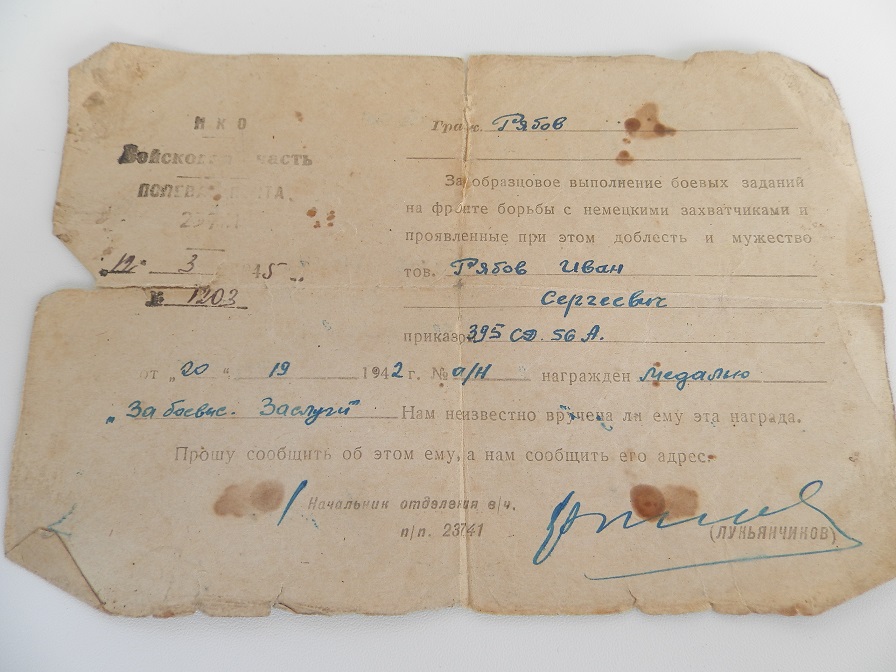 НКО
Войсковая часть
ПОЛЕВАЯ ПОЧТА
"12" 3 1945 г.
№ 1203
Граж. Рябов
За образцовое выполнение боевых заданий
на фронте борьбы с немецкими захватчиками и
проявленные при этом доблесть и мужество
тов. Рябов Иван
Сергеевич
приказом 395 СД. 56 А.
от "20" 19 1942 г. № о/н награжден медалью
"За боевые. Заслуги" Нам неизвестно вручена ли ему эта награда.
Прошу сообщить об этом ему, а нам сообщить его адрес.
Начальник отделения в/ч.
п/п. 23741
(ЛУКЬЯНЧИКОВ)